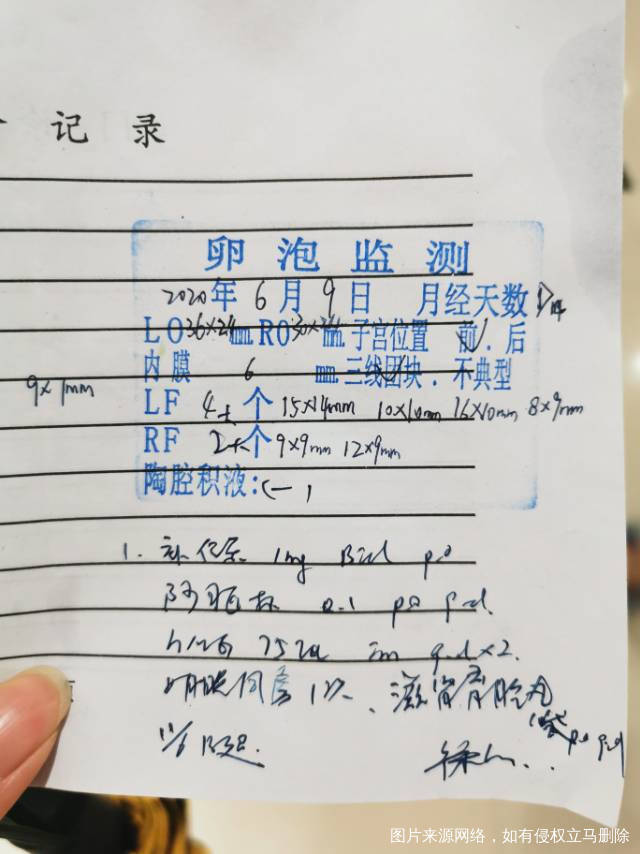 记 录
卵泡监测
2020年 6月 9日 月经天数
LO36×24mm RO30×24mm 子宫位置 前、后
内膜 6 mm 三线团块. 不典型
9×7mm
LF 4± 个 15×14mm 10×10mm 16×10mm 8×9mm
RF 2± 个 9×9mm 12×9mm
陶腔积液:(-)
1. 补佳乐 1mg Bid po
阿司林 0.1 po qd
HMG 75iu im qd×2
明 同房 1次、滋肾育胎丸
po qd
11/6 B超.
图片来源网络，如有侵权立马删除